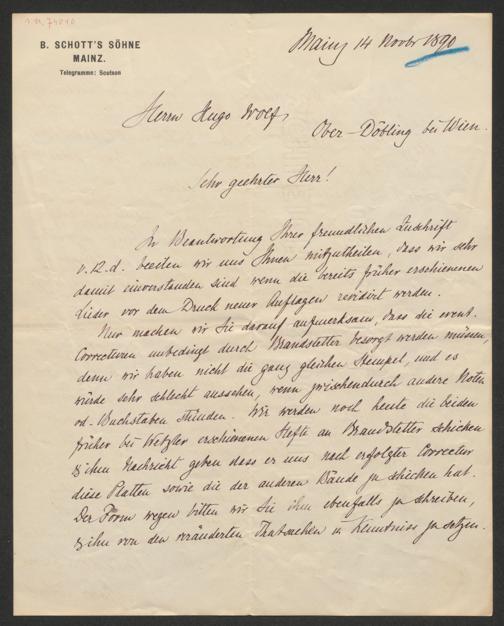 I.N. 74040
B. SCHOTT'S SÖHNE
MAINZ.
Telegramme: Scotson
Mainz 14 Novbr 1890
Herrn Hugo Wolf,
Ober-Döbling bei Wien.
Sehr geehrter Herr!
In Beantwortung Ihrer freundlichen Zuschrift
v. 12. d. beeilen wir uns Ihnen mitzutheilen, dass wir sehr
damit einverstanden sind wenn die bereits früher erschienenen
Lieder vor dem Druck neuer Auflagen revidirt werden.
Nur machen wir Sie darauf aufmerksam, dass die event.
Correcturen unbedingt durch Brandstetter besorgt werden müssen,
denn wir haben nicht die ganz gleichen Stempel, und es
würde sehr schlecht aussehen, wenn zwischendurch andere Noten
od. Buchstaben stünden. Wir werden noch heute die beiden
früher bei Wetzler erschienenen Hefte an Brandstetter schicken
& ihm Nachricht geben dass er uns nach erfolgter Correctur
diese Platten sowie die der anderen Bände zu schicken hat.
Der Form wegen bitten wir Sie ihm ebenfalls zu schreiben,
& ihn von den veränderten Thatsachen in Kenntniss zu setzen.